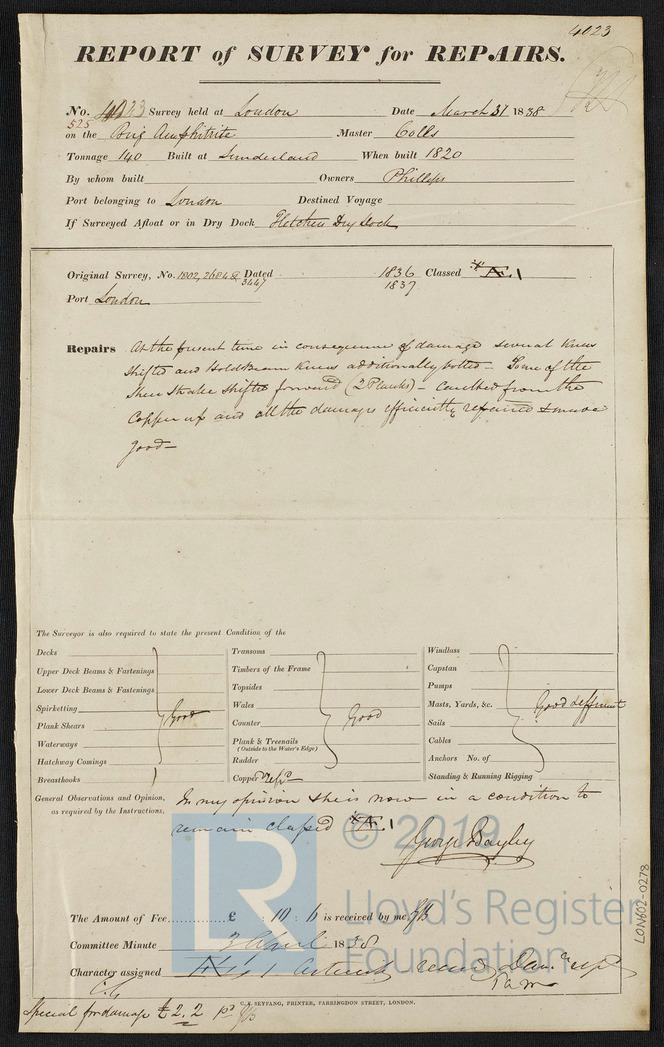 4023
REPORT of SURVEY for REPAIRS.
No. 4023 Survey held at London Date March 31 1838
525
on the Brig Amphitrite Master Colls
Tonnage 140 Built at Sunderland When built 1820
By whom built Owners Phillips
Port belonging to London Destined Voyage
If Surveyed Afloat or in Dry Dock Fletchers Dry Dock
Original Survey, No. 1802, 2684 & 3447 Dated 1836 Classed * Æ 1
1837
Port London
Repairs At the present time in consequence of damage several knees
shifted and Hold Beam knees additionally bolted – Some of the
Sheer Strake shifted forward (2 Planks) – caulked from the
Copper up and all the damages efficiently repaired & made
good –
The Surveyor is also required to state the present Condition of the
Decks
Upper Deck Beams & Fastenings
Lower Deck Beams & Fastenings
Spirketting
Plank Shears
Good
Waterways
Hatchway Comings
Breasthooks
Transoms
Timbers of the Frame
Topsides
Wales
Counter
Good
Plank & Treenails
(Outside to the Water's Edge)
Rudder
Copper repd
Windlass
Capstan
Pumps
Masts, Yards, &c.
Good & efficient
Sails
Cables
Anchors No. of
Standing & Running Rigging
General Observations and Opinion, In my opinion she is now in a condition to
as required by the Instructions. remain classed * Æ 1
George Bayley
The Amount of Fee £ : 10 : 6 is received by me, GB
Committee Minute 3 April 1838
Character assigned Æ 1 Asterisk record Dam. repd
C.G.
C. & SEYFANG, PRINTER, FARRINGDON STREET, LONDON.
Special for damage £2.2 pd GB
LON602-0278
LR
© 2019
Lloyd's Register
Foundation